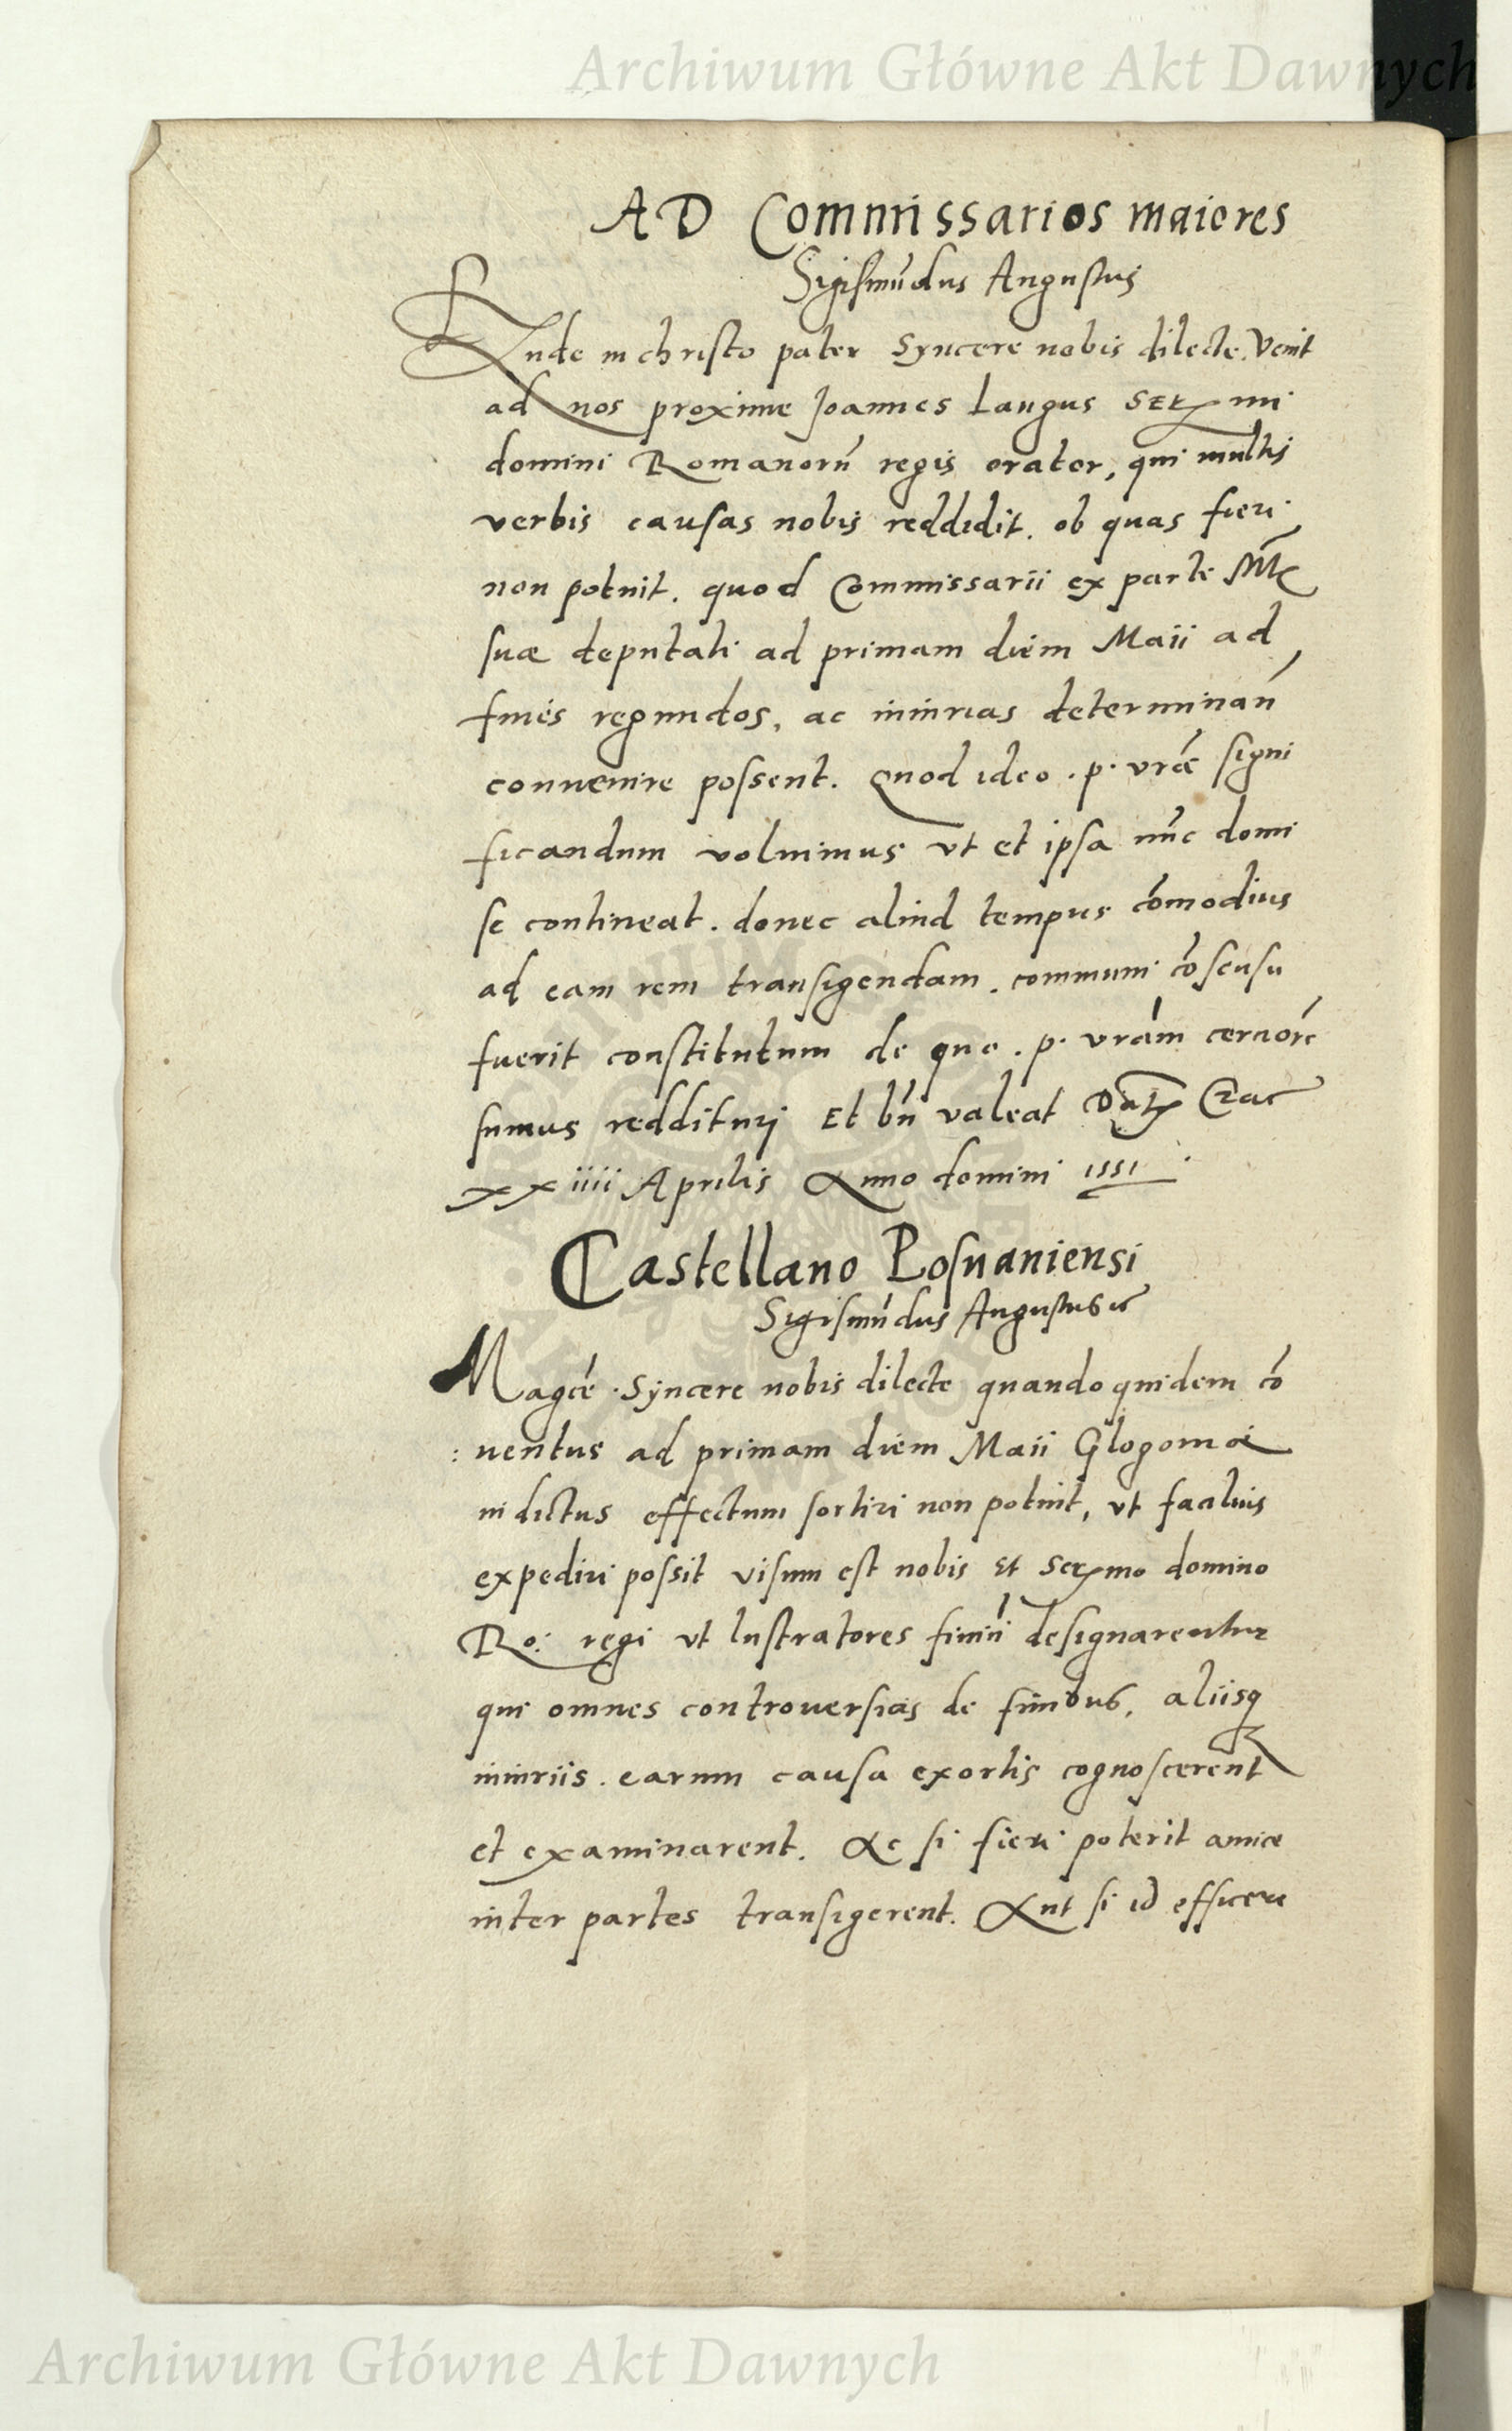 Archiwum Główne Akt Dawnych
AD Commissarios maiores
Sigismūdus Augustus
Rnde in christo pater Syncere nobis dilecte. Venit
ad nos proxime Joannes Langus SER mi
domini Romanorū regis orator, qui multis
verbis causas nobis reddidit. ob quas fieri
non potuit. quod Commissarii ex parte Mtis
suæ deputati ad primam diem Maii ad
fines regundos, ac iniurias determinan̄
conuenire possent. Quod ideo .p. vrāe signi
ficandum voluimus vt et ipsa nūc domi
se contineat. donec aliud tempus cōmodius
ad eam rem transigendam. communi cōsensu
fuerit constitutum de quo .p. vrām cerciorē
sumus reddituri Et bn̄ valeat Dat Crac
xxiiii Aprilis Anno domini 1551
Castellano Posnaniensi
Sigismūdus Augustus etc
Magcē Syncere nobis dilecte quandoquidem cō
: uentus ad primam diem Maii Glogouiæ
indictus effectum sortiri non potuit, vt facilius
expediri possit visum est nobis Et Sermo domino
Ro: regi vt lustratores finiū designarentur
qui omnes controuersias de finibus, aliisq
iniuriis. earum causa exortis cognoscerent
et examinarent. Ac si fieri poterit amice
inter partes transigerent. Aut si id efficere
Archiwum Główne Akt Dawnych